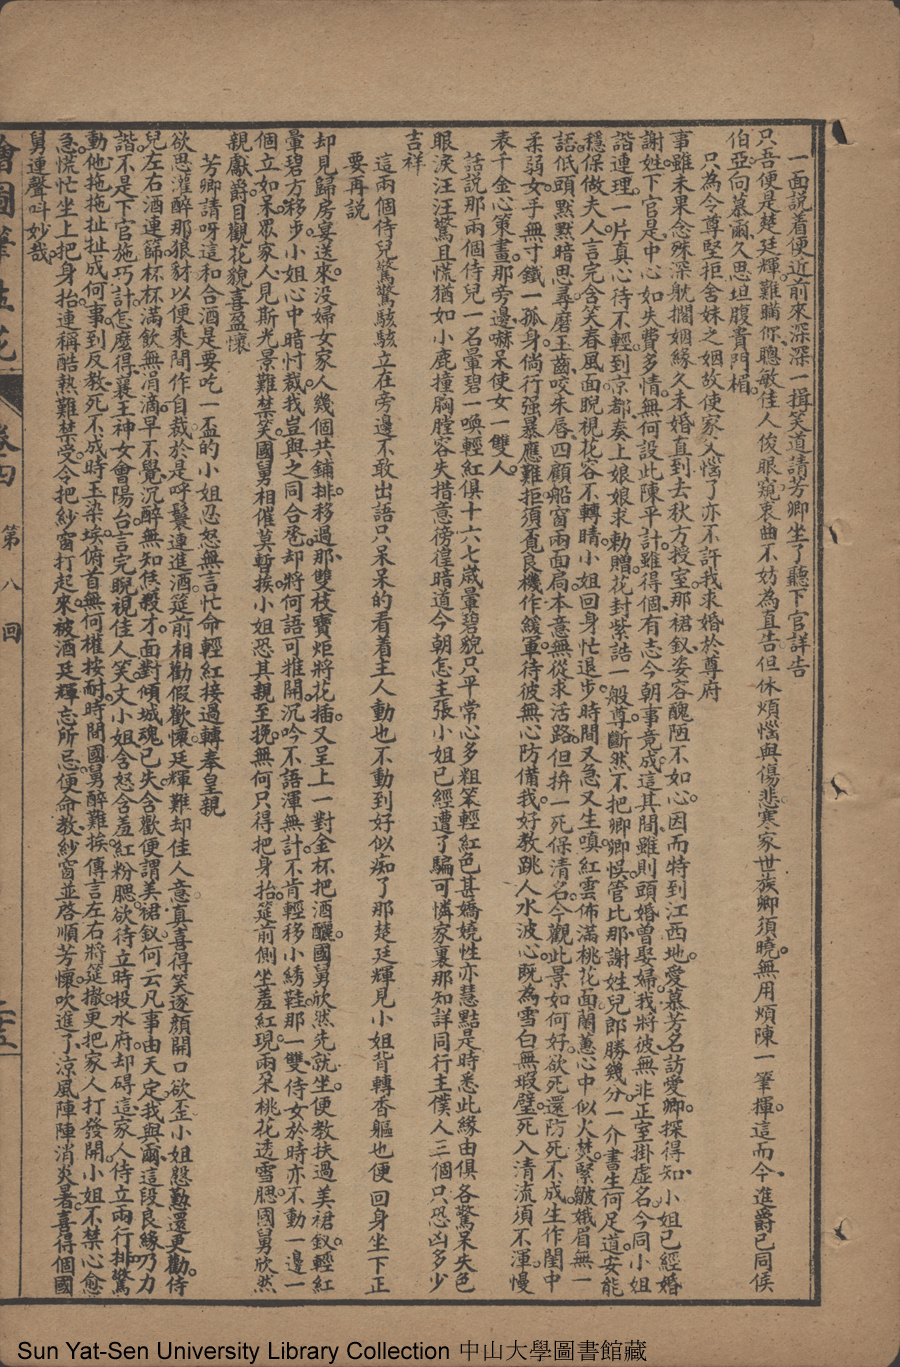 一面説着便近前來深深一揖笑道請芳卿坐了聽下官詳告
只吾便是楚廷輝難瞞你聰敏佳人俊眼窺衷曲不妨為直告但休煩惱與傷悲寒家世族卿須曉無用煩陳一筆揮這而今進爵已同侯
伯亞向慕爾久思坦腹貴門楣
只為令尊堅拒舍妹之姻故使家父惱了亦不許我求婚於尊府
事雖未果念殊深躭擱姻緣久未婚直到去秋方授室那裙釵姿容醜陋不如心因而特到江西地愛慕芳名訪愛卿探得知小姐已經婚
謝姓下官是中心如失費多情無何設此陳平計雖得個有志今朝事竟成這其間雖則頭婚曾娶婦我將彼無非正室掛虛名今同小姐
諧連理一片真心待不輕到京都奏上娘娘求勅贈花封紫誥一般尊斷然不把卿卿悞管比那謝姓兒郎勝幾分一介書生何足道安能
穩保做夫人言完含笑春風面睨視花容不轉睛小姐回身忙退步時間又急又生嗔紅雲佈滿桃花面蘭蕙心中似火焚緊皺娥眉無一
語低頭默默暗思尋磨玉齒咬朱唇四顧船窗兩面扃本意無從求活路但拚一死保清名今觀此景如何好欲死還防死不成生作閨中
柔弱女手無寸鐵一孤身倘行强暴應難拒須覓良機作緩軍待彼無心防備我好教跳入水波心既為雪白無瑕璧死入清流須不渾慢
表千金心策畫那旁邊嚇呆使女一雙人
話說那兩個侍兒一名暈碧一喚輕紅俱十六七歲暈碧貌只平常心多粗笨輕紅色甚嬌嬈性亦慧黠是時悉此緣由俱各驚呆失色
眼淚汪汪驚且慌猶如小鹿撞胸膛容失措意徬徨暗道今朝怎主張小姐已經遭了騙可憐家裏那知詳同行主僕人三個只恐凶多少
吉祥
這兩個侍兒驚驚駭駭立在旁邊不敢出語只呆呆的看着主人動也不動到好似痴了那楚廷輝見小姐背轉香軀也便回身坐下正
要再說
却見歸房宴送來没婦女家人幾個共鋪排移過那雙枝寶炬將花插又呈上一對金杯把酒釃國舅欣然先就坐便教扶過美裙釵輕紅
暈碧方移步小姐心中暗忖裁我豈與之同合卺却將何語可推開沉吟不語渾無計不肯輕移小綉鞋那一雙侍女於時亦不動一邊一
個立如呆眾家人見斯光景難禁笑國舅相催莫暫挨小姐恐其親至挽無何只得把身抬筵前側坐羞紅現兩朵桃花透雪腮國舅欣然
親獻爵目觀花貌喜盈懷
芳卿請呀這和合酒是要吃一盃的小姐忍怒無言忙命輕紅接過轉奉皇親
欲思灌醉那狼豺以便乘間作自裁於是呼鬟連進酒筵前相勸假歡懷廷輝難却佳人意真喜得笑逐顏開口欲歪小姐慇懃還更勸侍
兒左右酒連篩杯杯滿飲無涓滴早不覺沉醉無知恁殺才面對傾城魂已失含歡便謂美裙釵何云凡事由天定我與爾這段良緣乃力
諧不是下官施巧計怎麼得襄王神女會陽台言完睨視佳人笑丈小姐含怒含羞紅粉腮欲待立時投水府却碍這家人侍立兩行排驚
動他拖拖扯扯成何事到反教死不成時玉染埃俯首無何權按耐時間國舅醉難挨傳言左右將筵撤更把家人打發開小姐不禁心愈
急慌忙坐上把身抬連稱酷熱難禁受令把紗窗打起來被酒廷輝忘所忌便命教紗窗並啓順芳懷吹進了凉風陣陣消炎暑喜得個國
舅連聲呌妙哉
繪圖筆生花 卷四 第八回 二十五
Sun Yat-Sen University Library Collection 中山大學圖書館藏